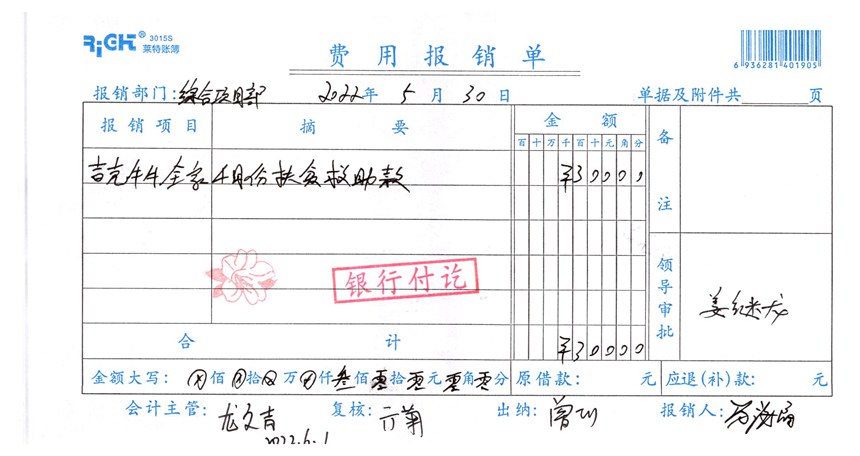 RiGHT® 3015S
莱特账簿
费用报销单
6 936281 401905
报销部门:综合项目部 2022年 5月 30日 单据及附件共 页
报销项目 摘要 金额 备注
百十万千百十元角分
吉克牛牛全家4月份扶贫救助款 ¥30000
银行付讫
领导审批
合计 ¥30000
金额大写: 佰 拾 万 仟叁佰零拾零元零角零分 原借款: 元 应退(补)款: 元
会计主管:龙文吉 复核: 出纳:曾 报销人:
2022.6.1